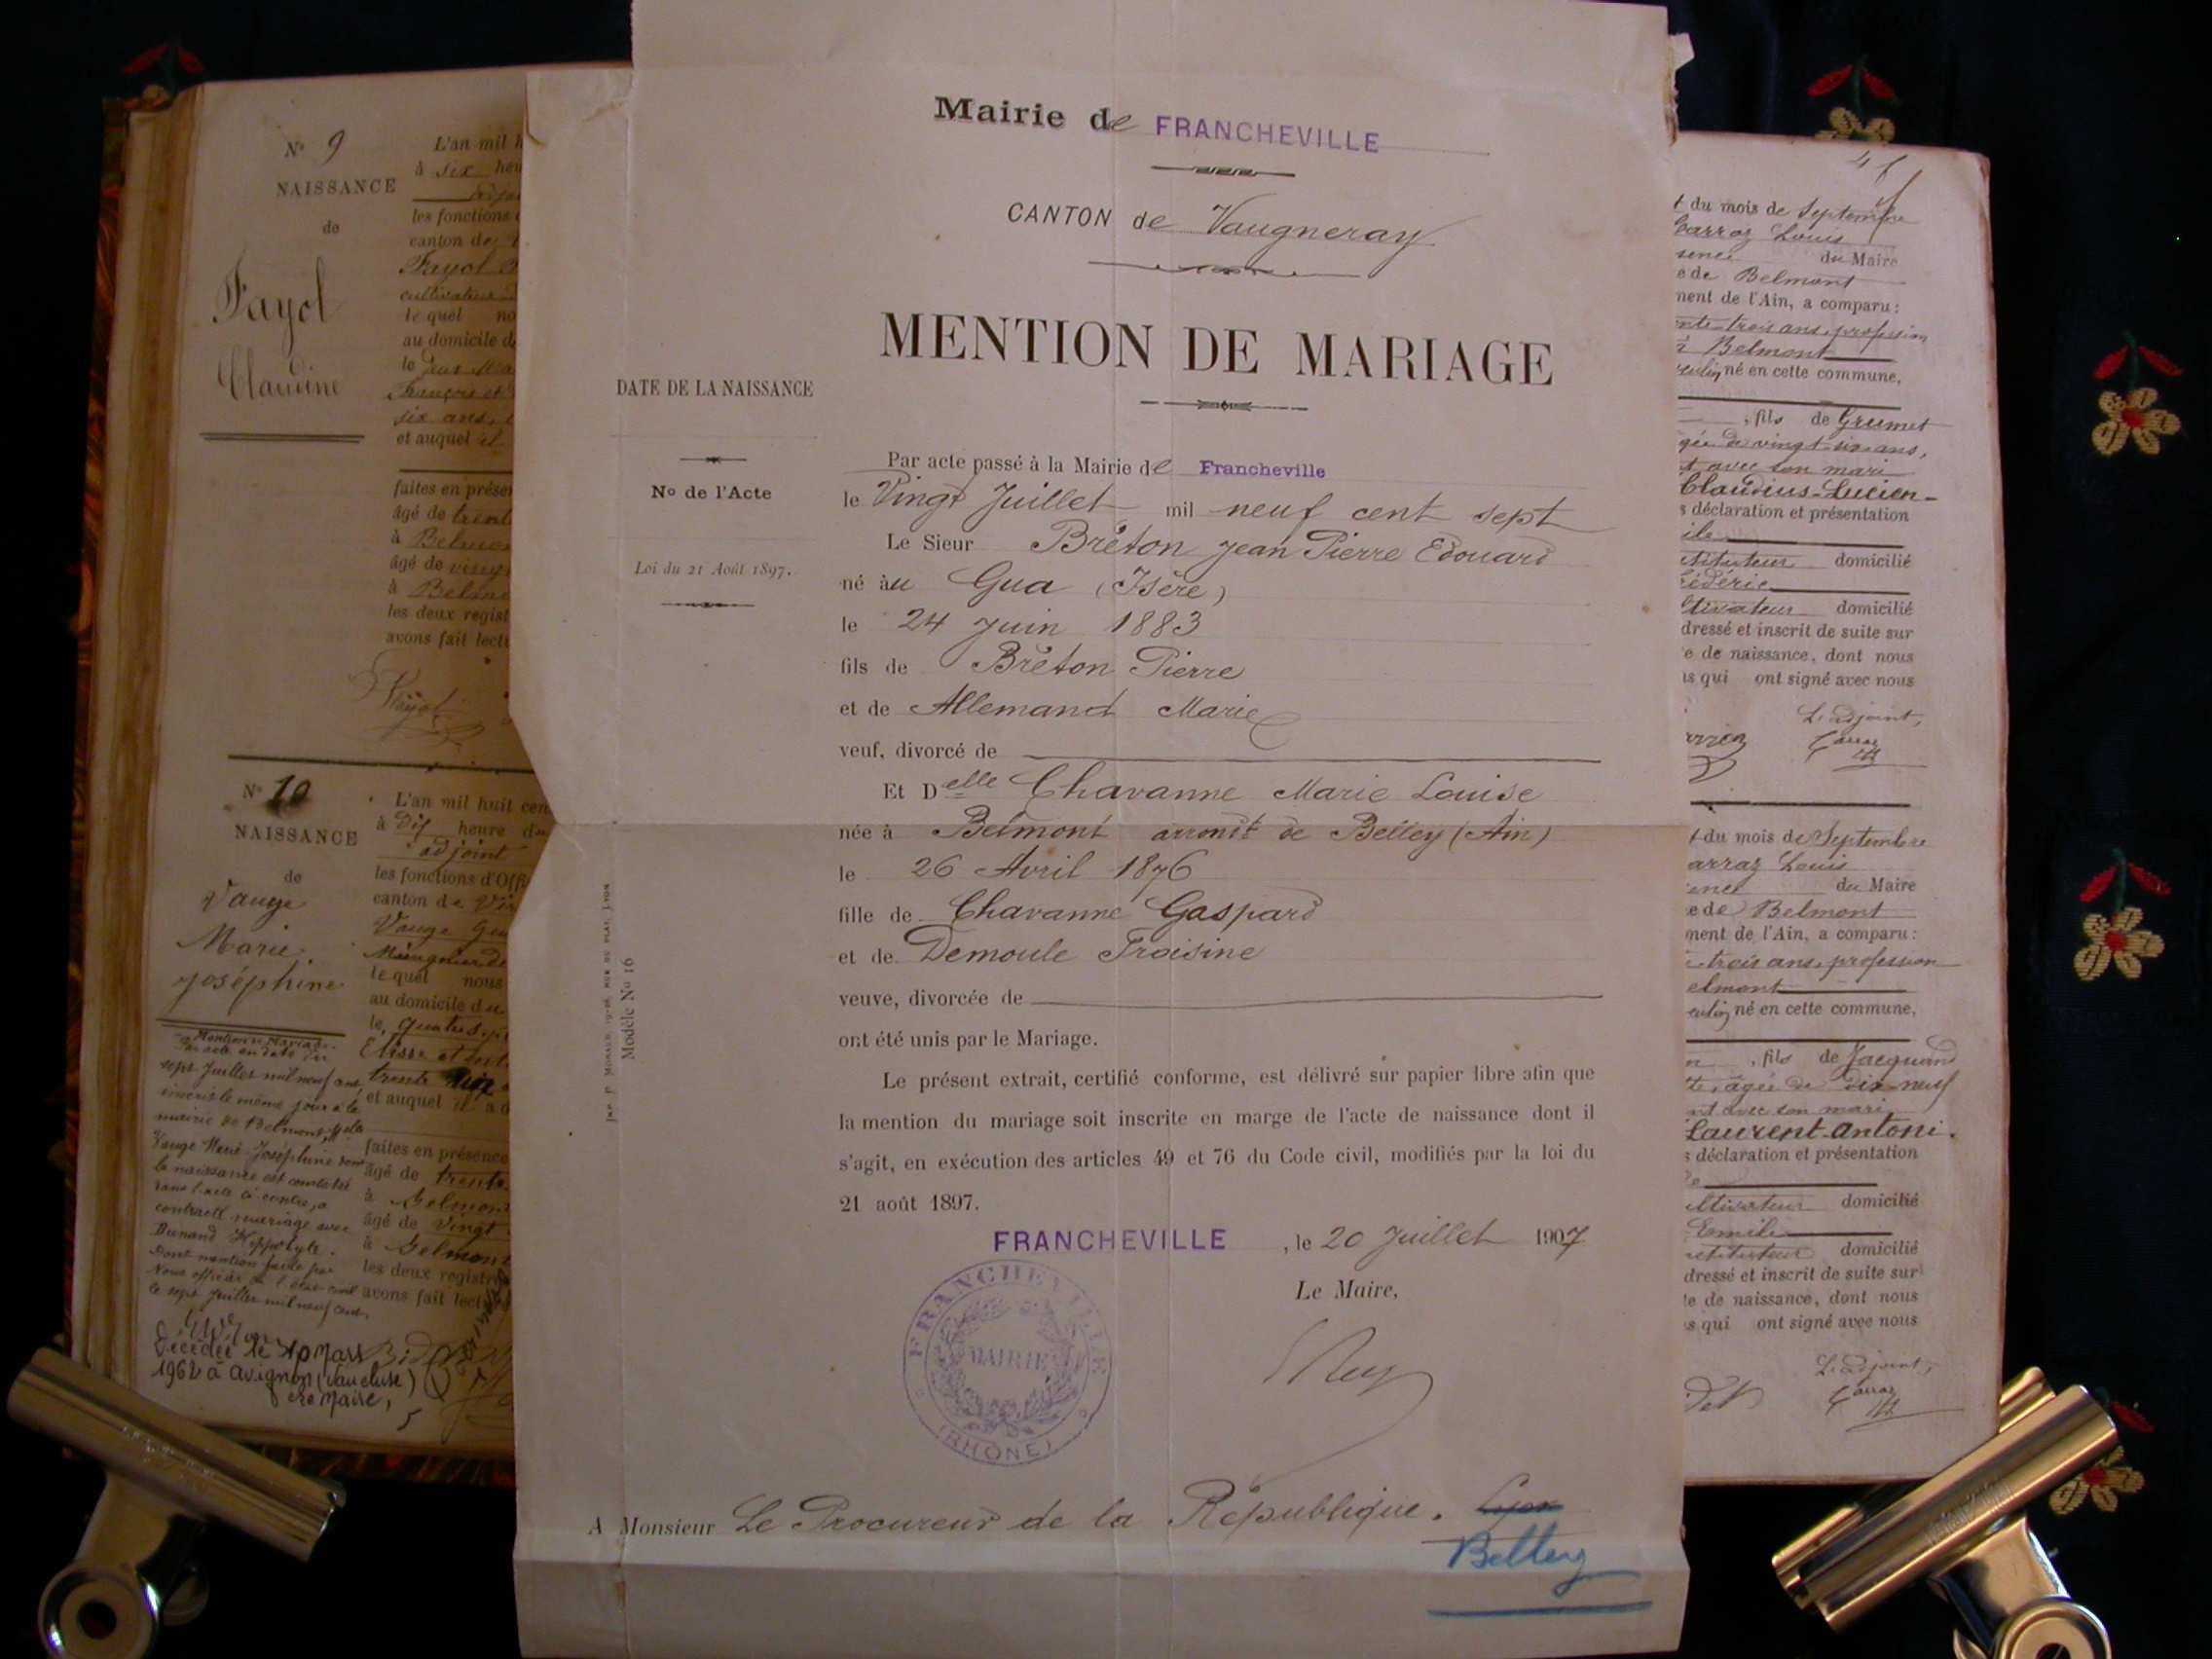 Nº 9
NAISSANCE
de
Fayol
Claudine
L'an mil h
à six heu
adjoi
les fonctions
canton de
Fayol
cultivateur
lequel no
au domicile d
le
François et
six ans,
et auquel il
faites en présen
âgé de trent
à Belmon
âgé de vingt
à Belmo
les deux regist
avons fait lectu
Fayol
Nº 10
NAISSANCE
de
Vauge
Marie
Joséphine
Mention de Mariage.
Par acte en date du
sept Juillet mil neuf cent,
inscrit le même jour à la
mairie de Belmont, la
Vauge Marie-Joséphine dont
la naissance est constatée
dans l'acte ci-contre, a
contracté mariage avec
Dunand Hippolyte.
Dont mention faite par
Nous officier de l'état civil
le sept Juillet mil neuf cent.
Décédée le 10 Mars
1962 à Avignon (Vaucluse)
Le Maire,
L'an mil huit cen
à Dix heure du
adjoint
les fonctions d'Offi
canton de Vir
Vauge
lequel nous
au domicile du
le quatre
Elise et
trente
et auquel il a d
faites en présence
âgé de trente
à Belmont
âgé de vingt
à Belmont
les deux registre
avons fait lecture
Mairie de FRANCHEVILLE
CANTON de Vaugneray
MENTION DE MARIAGE
DATE DE LA NAISSANCE
No de l'Acte
Loi du 21 Août 1897.
Par acte passé à la Mairie de Francheville
le Vingt Juillet mil neuf cent sept
Le Sieur Bréton Jean Pierre Edouard
né àu Gua (Isère)
le 24 Juin 1883
fils de Bréton Pierre
et de Allemand Marie
veuf, divorcé de
Et Delle Chavanne Marie Louise
née à Belmont arrondt de Belley (Ain)
le 26 Avril 1876
fille de Chavanne Gaspard
et de Demoule Froisine
veuve, divorcée de
ont été unis par le Mariage.
Le présent extrait, certifié conforme, est délivré sur papier libre afin que
la mention du mariage soit inscrite en marge de l'acte de naissance dont il
s'agit, en exécution des articles 49 et 76 du Code civil, modifiés par la loi du
21 août 1897.
FRANCHEVILLE , le 20 Juillet 1907
Le Maire,
FRANCHEVILLE
MAIRIE
(RHÔNE)
A Monsieur Le Procureur de la République. Lyon
Belley
Modèle No 16
t du mois de Septembre
Carraz Louis
sence du Maire
e de Belmont
ment de l'Ain, a comparu :
nte-trois ans, profession
à Belmont
né en cette commune,
, fils de Grumet
gée de vingt-six ans,
t avec son mari
Claudius-Lucien-
s déclaration et présentation
ile
stituteur domicilié
édéric
ltivateur domicilié
dressé et inscrit de suite sur
e de naissance, dont nous
is qui ont signé avec nous
L'adjoint,
Carraz
t du mois de Septembre
arraz Louis
ence du Maire
e de Belmont
ment de l'Ain, a comparu :
trois ans, profession
elmont
né en cette commune,
, fils de Jacquand
te, âgée de dix-neuf
nt avec son mari
Laurent-Antoni.
s déclaration et présentation
ltivateur domicilié
Emile
stituteur domicilié
dressé et inscrit de suite sur
te de naissance, dont nous
s qui ont signé avec nous
L'adjoint,
Carraz